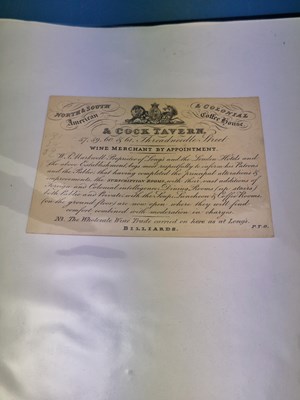 NORTH & SOUTH American
& COLONIAL Coffee House
& COCK TAVERN,
Threadneedle Street
WINE MERCHANT BY APPOINTMENT.
W. Proprietor of Long's and the London Hotels and
the above Establishment, begs most respectfully to inform his Patrons
and the Public, that having completed the principal alterations &
improvements, the SUBSCRIPTION ROOMS, with their vast additions of
Foreign and Colonial intelligence, Dining Rooms (up stairs)
both Public and Private, with the Soup, Luncheon & Coffee Rooms
(on the ground floor) are now open, where they will find
comfort combined with moderation in charges.
NB. The Wholesale Wine Trade carried on here as at Long's.
BILLIARDS.
P.T.O.